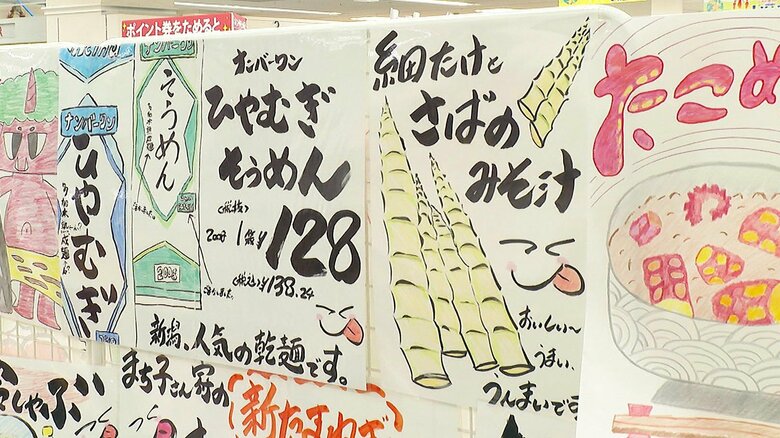 ポイント券をためると
ナンバーワン
ひやむぎ
ナンバーワン
そうめん
ナンバーワン
ひやむぎ
そうめん
<税抜>
200g 1個¥128
<税込>¥138.24
新潟、人気の乾麺です。
細たけと
さばの
みそ汁
おいしい〜
うまい、
うんまいです
たこめ
しゃぶ
まち子さん家の
新たまねぎ